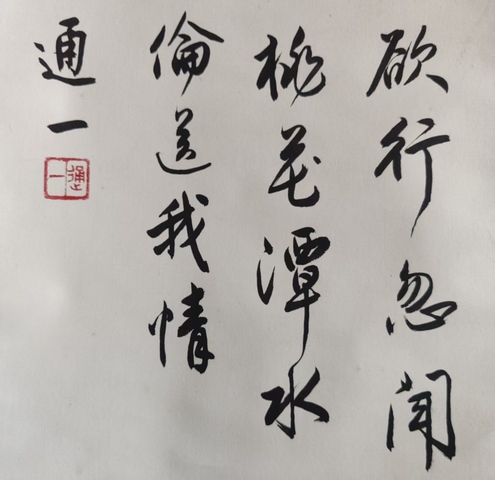 欲行忽闻
桃花潭水
倫送我情
通一
通一